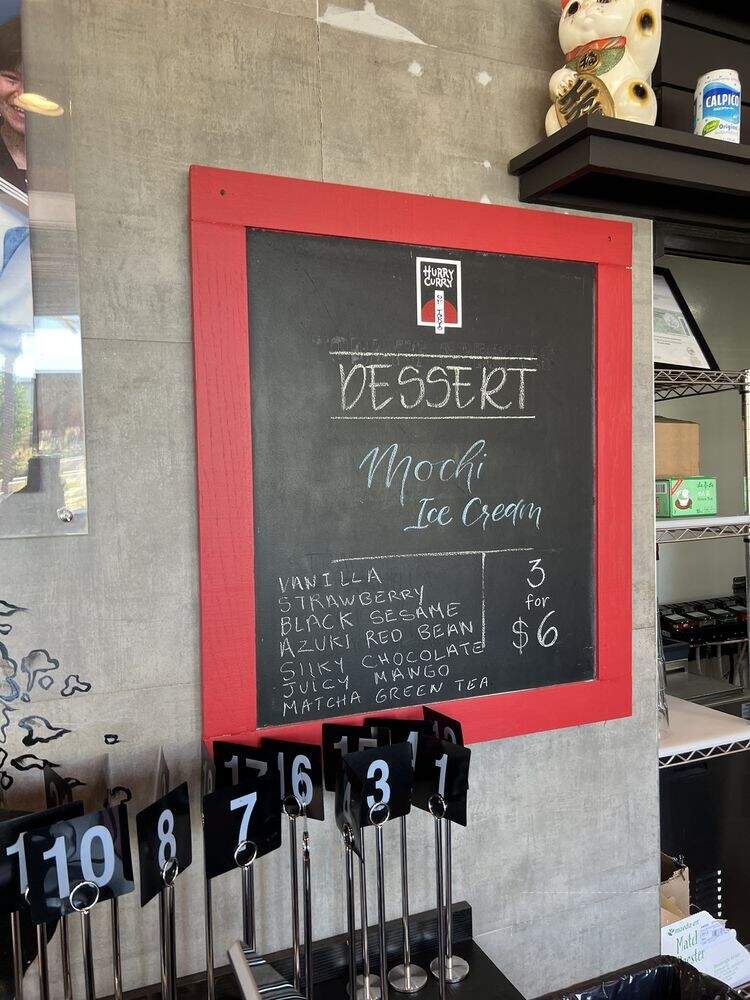 CALPICO
Original
HURRY
CURRY
OF TOKYO
DESSERT
Mochi
Ice Cream
VANILLA
STRAWBERRY
BLACK SESAME
AZUKI RED BEAN
SILKY CHOCOLATE
JUICY MANGO
MATCHA GREEN TEA
3
for
$6
10
8
7
17
16
3
1